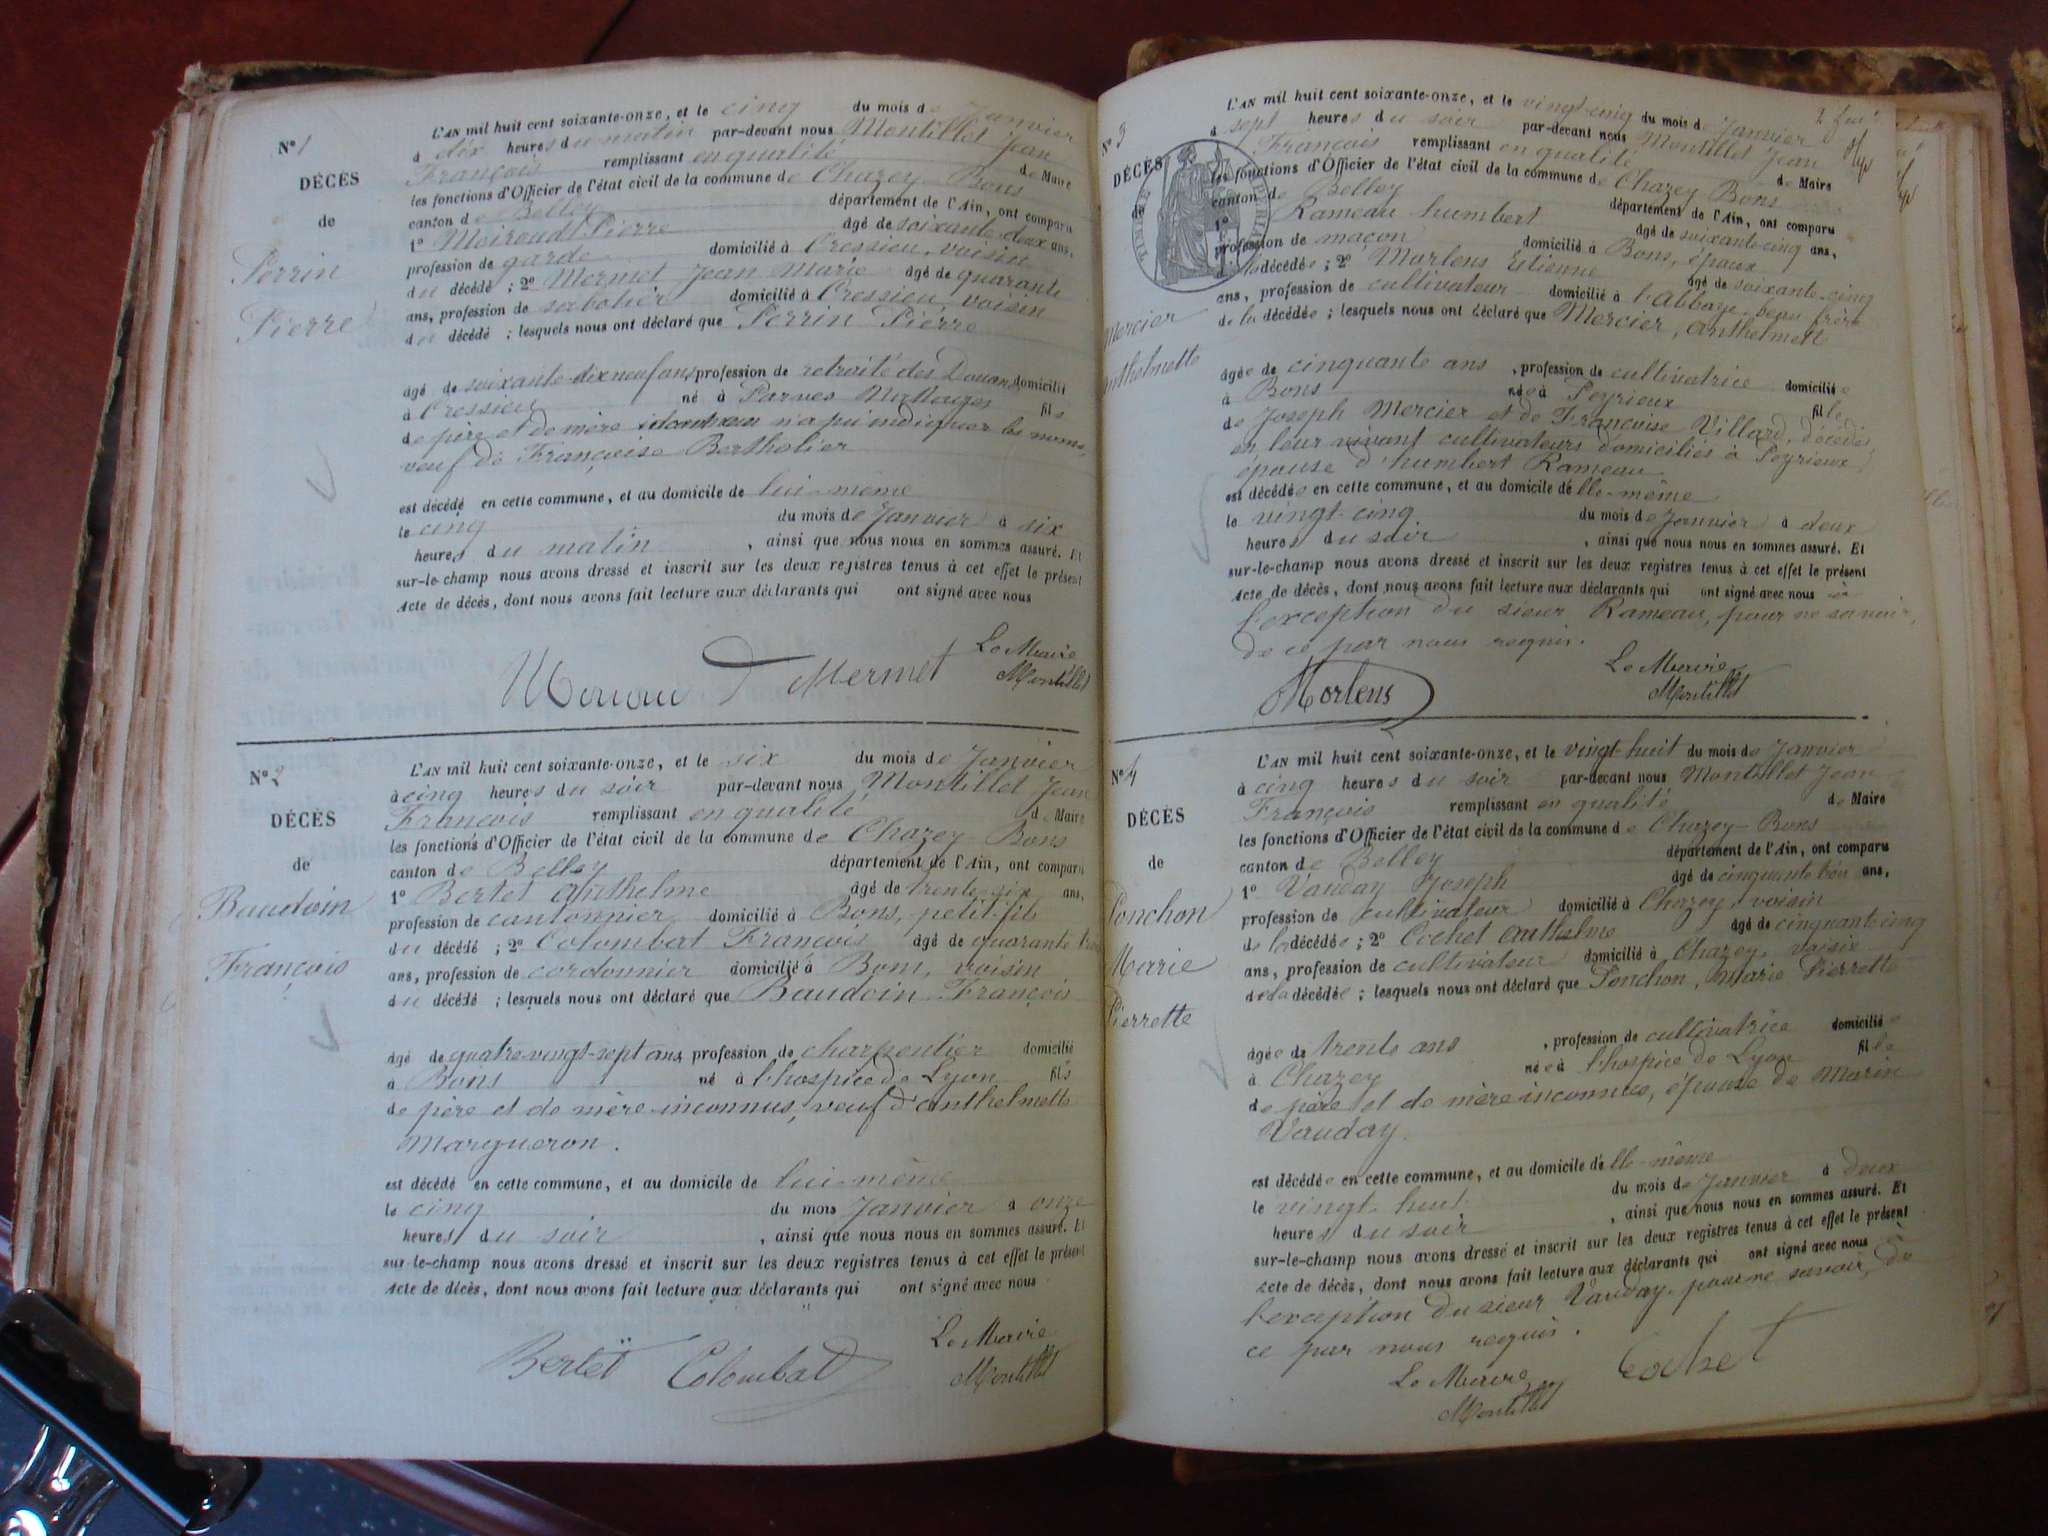 N° 1
DÉCÈS
de
Perrin
Pierre
L'AN mil huit cent soixante-onze, et le cinq du mois de Janvier
à dix heures du matin par-devant nous Montillet Jean
François remplissant en qualité de Maire
les fonctions d'Officier de l'état civil de la commune de Chazey-Bons
canton de Belley département de l'Ain, ont comparu
1° Pierre âgé de soixante-deux ans,
profession de garde domicilié à Cressieu, voisin
du décédé ; 2° Mermet Jean Marie âgé de quarante
ans, profession de sabotier domicilié à Cressieu, voisin
du décédé ; lesquels nous ont déclaré que Perrin Pierre
âgé de soixante-dix neuf ans profession de retraité des Douanes domicilié
à Cressieu né à Parves fils
de père et de mère n'a pu indiquer les noms,
veuf de Françoise Bertholier
est décédé en cette commune, et au domicile de lui-même
le cinq du mois de Janvier à six
heures du matin, ainsi que nous nous en sommes assuré. Et
sur-le-champ nous avons dressé et inscrit sur les deux registres tenus à cet effet le présent
Acte de décès, dont nous avons fait lecture aux déclarants qui ont signé avec nous
Le Maire
Mermet Montillet
N° 2
DÉCÈS
de
Baudoin
François
L'AN mil huit cent soixante-onze, et le six du mois de Janvier
à cinq heures du soir par-devant nous Montillet Jean
François remplissant en qualité de Maire
les fonctions d'Officier de l'état civil de la commune de Chazey-Bons
canton de Belley département de l'Ain, ont comparu
1° Bertet Anthelme âgé de trente-six ans,
profession de cantonnier domicilié à Bons, petit-fils
du décédé ; 2° Colombat François âgé de quarante trois
ans, profession de cordonnier domicilié à Bons, voisin
du décédé ; lesquels nous ont déclaré que Baudoin François
âgé de quatre-vingt-sept ans, profession de charpentier domicilié
à Bons né à l'hospice de Lyon fils
de père et de mère inconnus, veuf d'Anthelmette
Margueron.
est décédé en cette commune, et au domicile de lui-même
le cinq du mois Janvier à onze
heures du soir, ainsi que nous nous en sommes assuré. Et
sur-le-champ nous avons dressé et inscrit sur les deux registres tenus à cet effet le présent
Acte de décès, dont nous avons fait lecture aux déclarants qui ont signé avec nous
Le Maire
Bertet Colombat Montillet
N° 3
DÉCÈS
de
Mercier
Anthelmette
L'AN mil huit cent soixante-onze, et le vingt-cinq du mois de Janvier
à sept heures du soir par-devant nous Montillet Jean
François remplissant en qualité de Maire
les fonctions d'Officier de l'état civil de la commune de Chazey-Bons
canton de Belley département de l'Ain, ont comparu
1° Rameau humbert âgé de soixante-cinq ans,
profession de maçon domicilié à Bons, époux
de la décédée ; 2° Morlens Etienne âgé de soixante-cinq
ans, profession de cultivateur domicilié à l'Abbaye, beau frère
de la décédée ; lesquels nous ont déclaré que Mercier, Anthelmette
âgée de cinquante ans, profession de cultivatrice domiciliée
à Bons née à Peyrieux fille
de Joseph Mercier et de Françoise Villard, décédés
en leur vivant cultivateurs domiciliés à Peyrieux,
épouse d'humbert Rameau
est décédée en cette commune, et au domicile d'elle-même
le vingt-cinq du mois de Janvier à deux
heures du soir, ainsi que nous nous en sommes assuré. Et
sur-le-champ nous avons dressé et inscrit sur les deux registres tenus à cet effet le présent
Acte de décès, dont nous avons fait lecture aux déclarants qui ont signé avec nous à
l'exception du sieur Rameau, pour ne savoir,
de ce par nous requis.
Le Maire
Morlens Montillet
N° 4
DÉCÈS
de
Ponchon
Marie
Pierrette
L'AN mil huit cent soixante-onze, et le vingt-huit du mois de Janvier
à cinq heures du soir par-devant nous Montillet Jean
François remplissant en qualité de Maire
les fonctions d'Officier de l'état civil de la commune de Chazey-Bons
canton de Belley département de l'Ain, ont comparu
1° Vauday Joseph âgé de cinquante trois ans,
profession de cultivateur domicilié à Chazey, voisin
de la décédée ; 2° Cochet Anthelme âgé de cinquante cinq
ans, profession de cultivateur domicilié à Chazey, voisin
de la décédée ; lesquels nous ont déclaré que Ponchon, Marie Pierrette
âgée de trente ans, profession de cultivatrice domiciliée
à Chazey née à l'hospice de Lyon fille
de père et de mère inconnus, épouse de Marin
Vauday.
est décédée en cette commune, et au domicile d'elle-même
le vingt-huit du mois de Janvier à deux
heures du soir, ainsi que nous nous en sommes assuré. Et
sur-le-champ nous avons dressé et inscrit sur les deux registres tenus à cet effet le présent
Acte de décès, dont nous avons fait lecture aux déclarants qui ont signé avec nous
l'exception du sieur Vauday, pour ne savoir, de
ce par nous requis.
Le Maire Cochet
Montillet